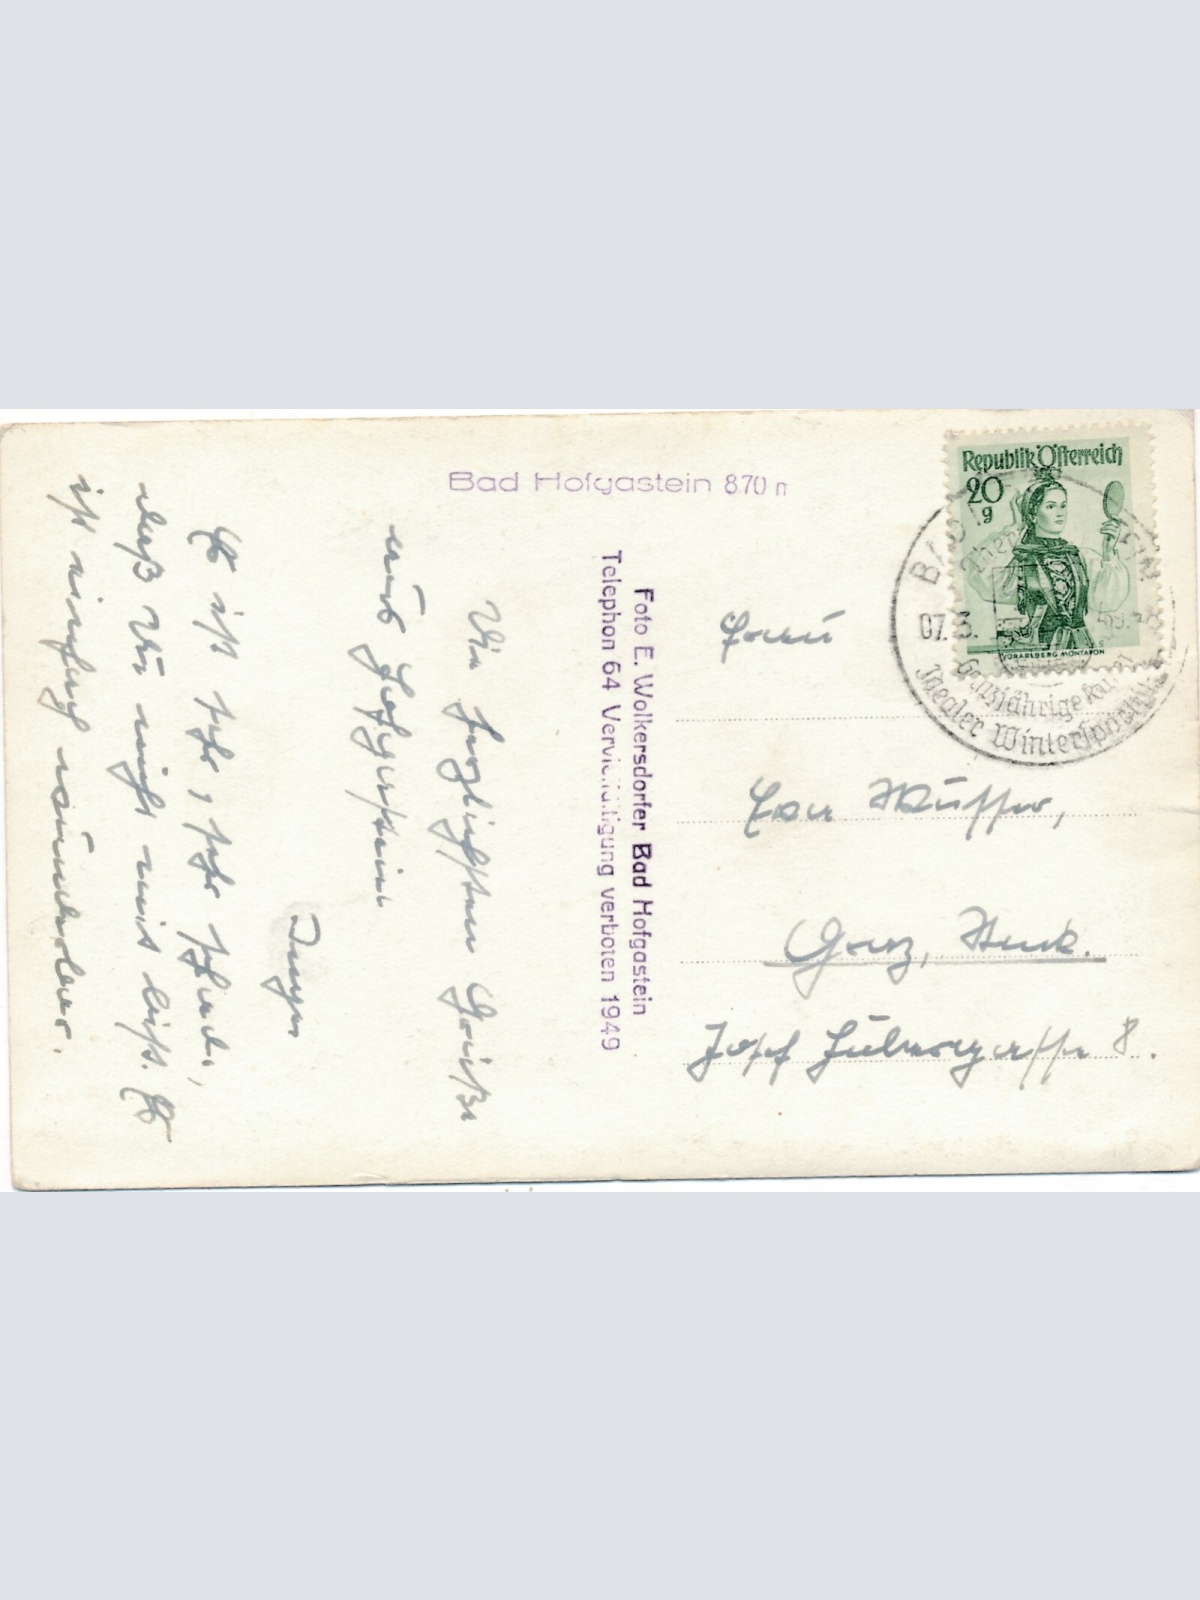 Bad Hofgastein 870 m
Republik Österreich
20
g
VORARLBERG MONTAFON
BAD
07. 3.
Ganzjährige Kurort
Idealer Wintersportplatz
Foto E. Wolkersdorfer Bad Hofgastein
Telephon 64 Vervielfältigung verboten 1949
Frau
Graz,
Josef Hubergasse 8.
Die herzlichsten Grüße
aus Hofgastein
Es ist sehr, sehr schade,
daß Du nicht mit bist. Es
ist einfach wunderbar.